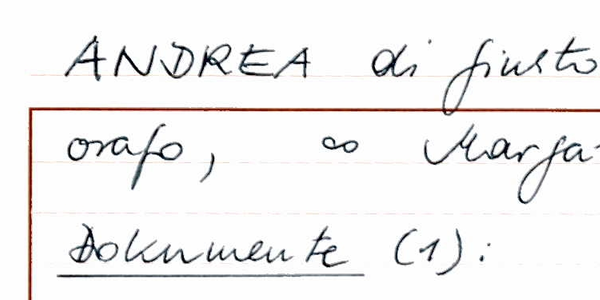 ANDREA di Giusto
orafo, ∞ Marga-
Dokumente (1):